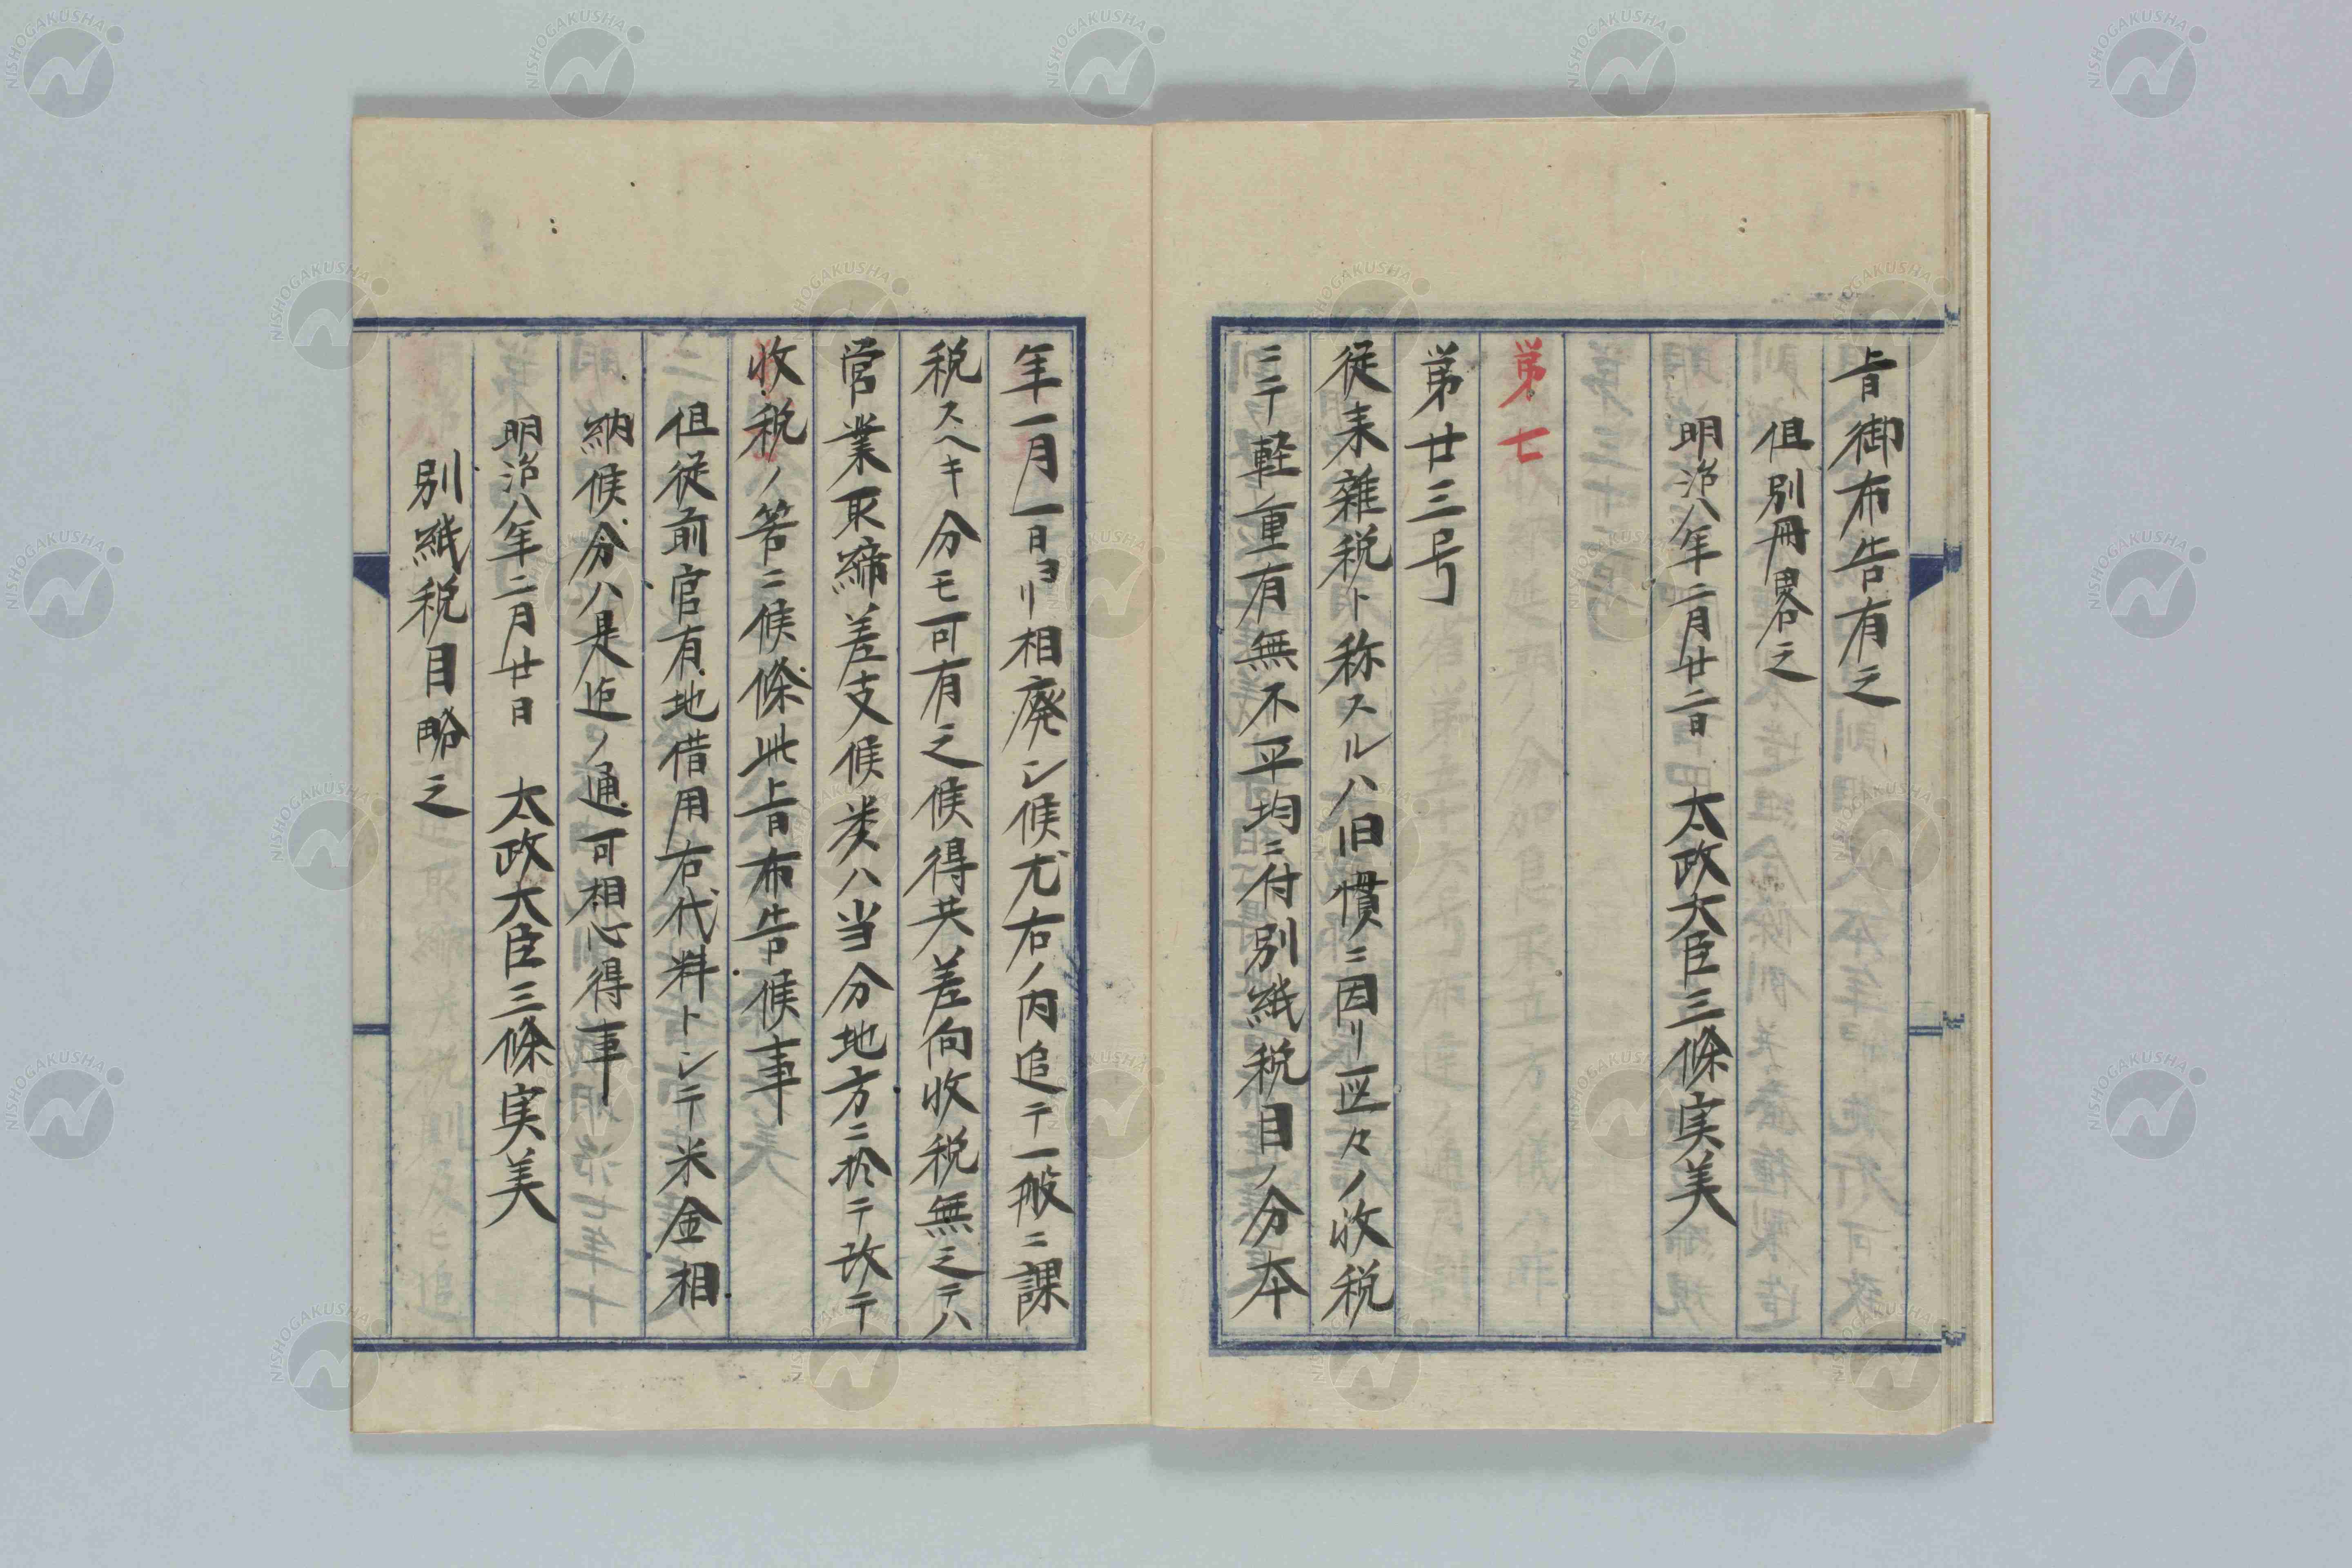 旨御布告有之
但別冊畧之
明治八年二月廿二日　太政大臣三條実美
第七
第廿三号
従来雑税ト称スルハ旧慣ニ因リ区々ノ收税
ニテ軽重有無不平均ニ付別紙税目ノ分本
年一月一日ヨリ相廃シ候尤右ノ内追テ一般ニ課
税スヘキ分モ可有之候得共差向收税無之テハ
営業取締差支候类ハ当分地方ニ於テ改テ
收税ノ筈ニ候條此旨布告候事
但従前官有地借用右代料トシテ米金相
納候分ハ是迄ノ通可相心得事
明治八年二月廿日　太政大臣三條実美
別紙税目略之
NISHOGAKUSHA